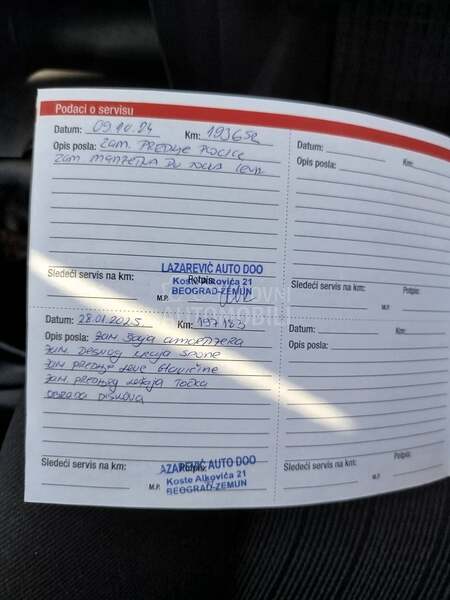 Podaci o servisu
Datum: 09.10.24 Km: 193652
Opis posla: ZAM. PREDNJE PLOCICE
ZAM MANŽETNA
Sledeći servis na km: M.P. Potpis:
LAZAREVIĆ AUTO DOO
Koste Alkovića 21
BEOGRAD-ZEMUN
Datum: 28.01.2025. Km: 197183
Opis posla: ZAM šolja amortizera
ZAM DESNOG kraja spone
ZAM PREDNJE leve Glavčine
ZAM PREDNJEG ležaja točka
OBRADA DISKOVA
Sledeći servis na km: M.P. Potpis:
AZAREVIĆ AUTO DOO
Koste Alkovića 21
BEOGRAD-ZEMUN
Datum: Km:
Opis posla:
Sledeći servis na km: M.P. Potpis:
Datum: Km:
Opis posla:
Sledeći servis na km: M.P. Potpis: